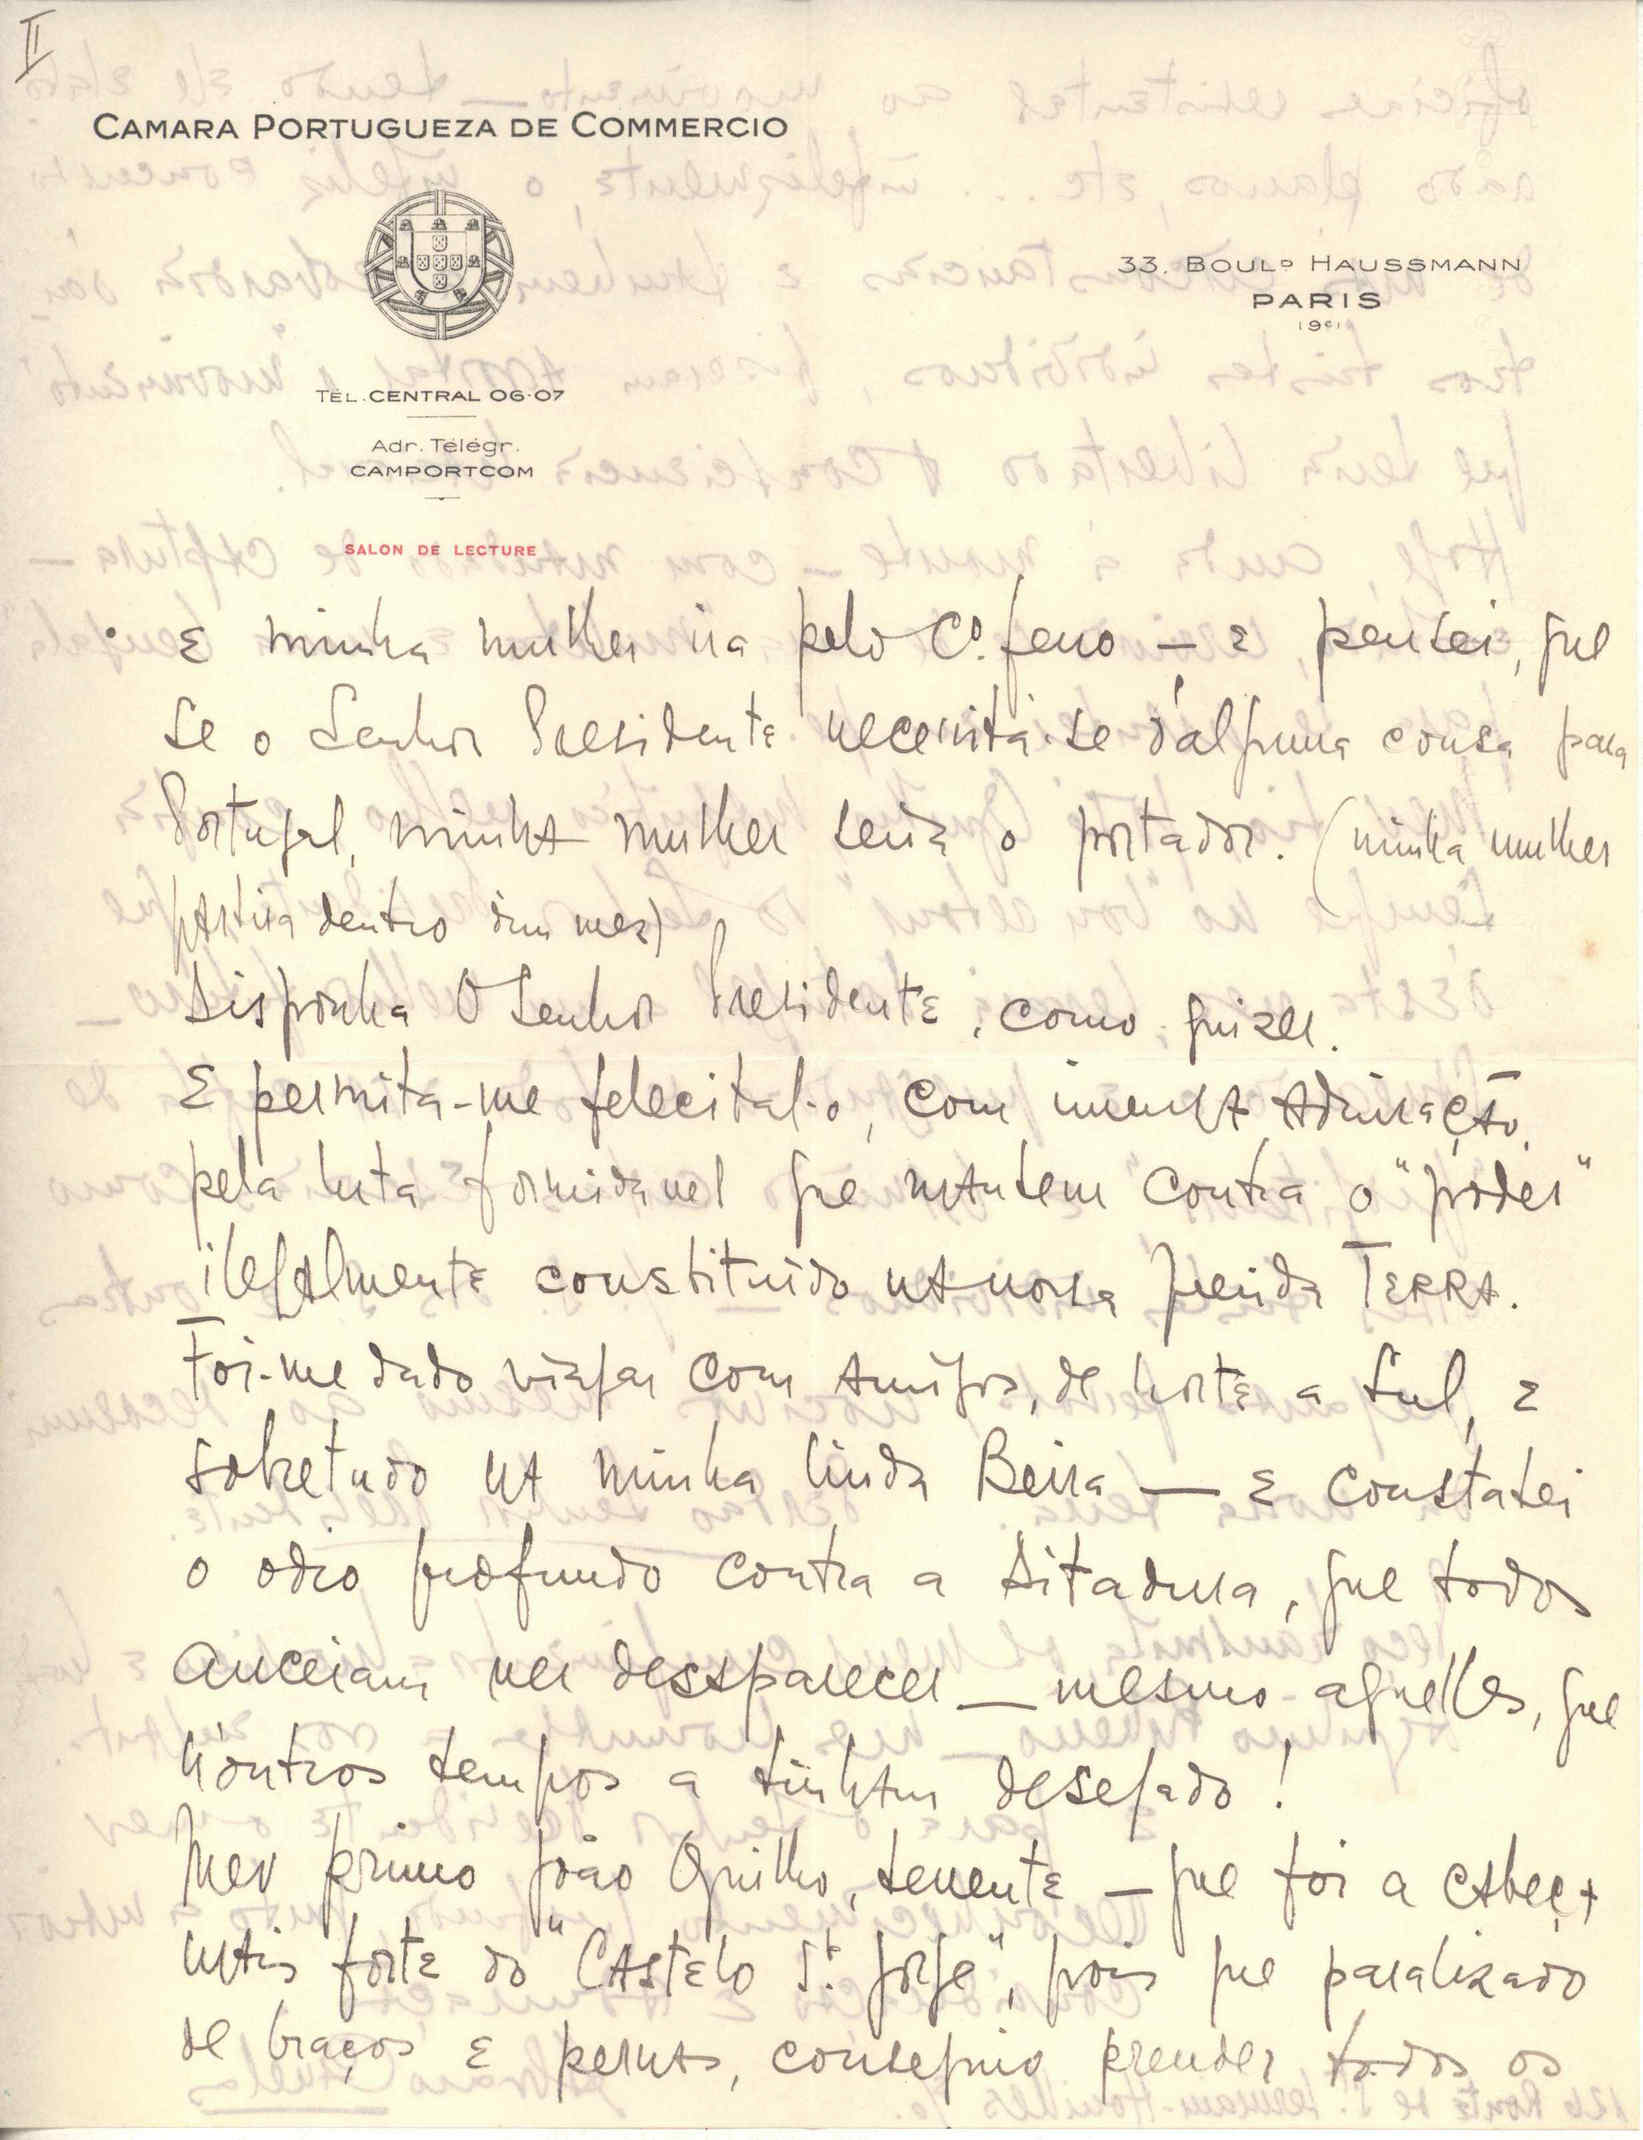 II
CAMARA PORTUGUEZA DE COMMERCIO
33. BOULD HAUSSMANN
PARIS
(9e)
TÉL. CENTRAL 06-07
Adr. Télégr.
CAMPORTCOM
SALON DE LECTURE
E minha mulher iria pelo Cº. ferro – E pensei, que
se o Senhor Presidente necessita-se d'alguma cousa para
Portugal, minha mulher seria o portador. (minha mulher
partira dentro d'um mez)
Disponha O Senhor Presidente, como quizer.
E permita-me felecital-o, com imensa Admiração,
pela luta formidavel que mantem contra o "poder"
ilegalmente constituido na nossa querida TERRA.
Foi-me dado viajar com Amigos, de norte a Sul, E
sobretudo na minha linda Beira – E constatei
o odio profundo contra a Ditadura, que todos
anceiam ver desaparecer – mesmo aquelles, que
n'outros tempos a tinham desejado!
Meu primo João Quilho, tenente – que foi a cabeça
mais forte do "Castelo S.t Jorge", pois que paralizado
de braços E pernas, conseguio prender todos os